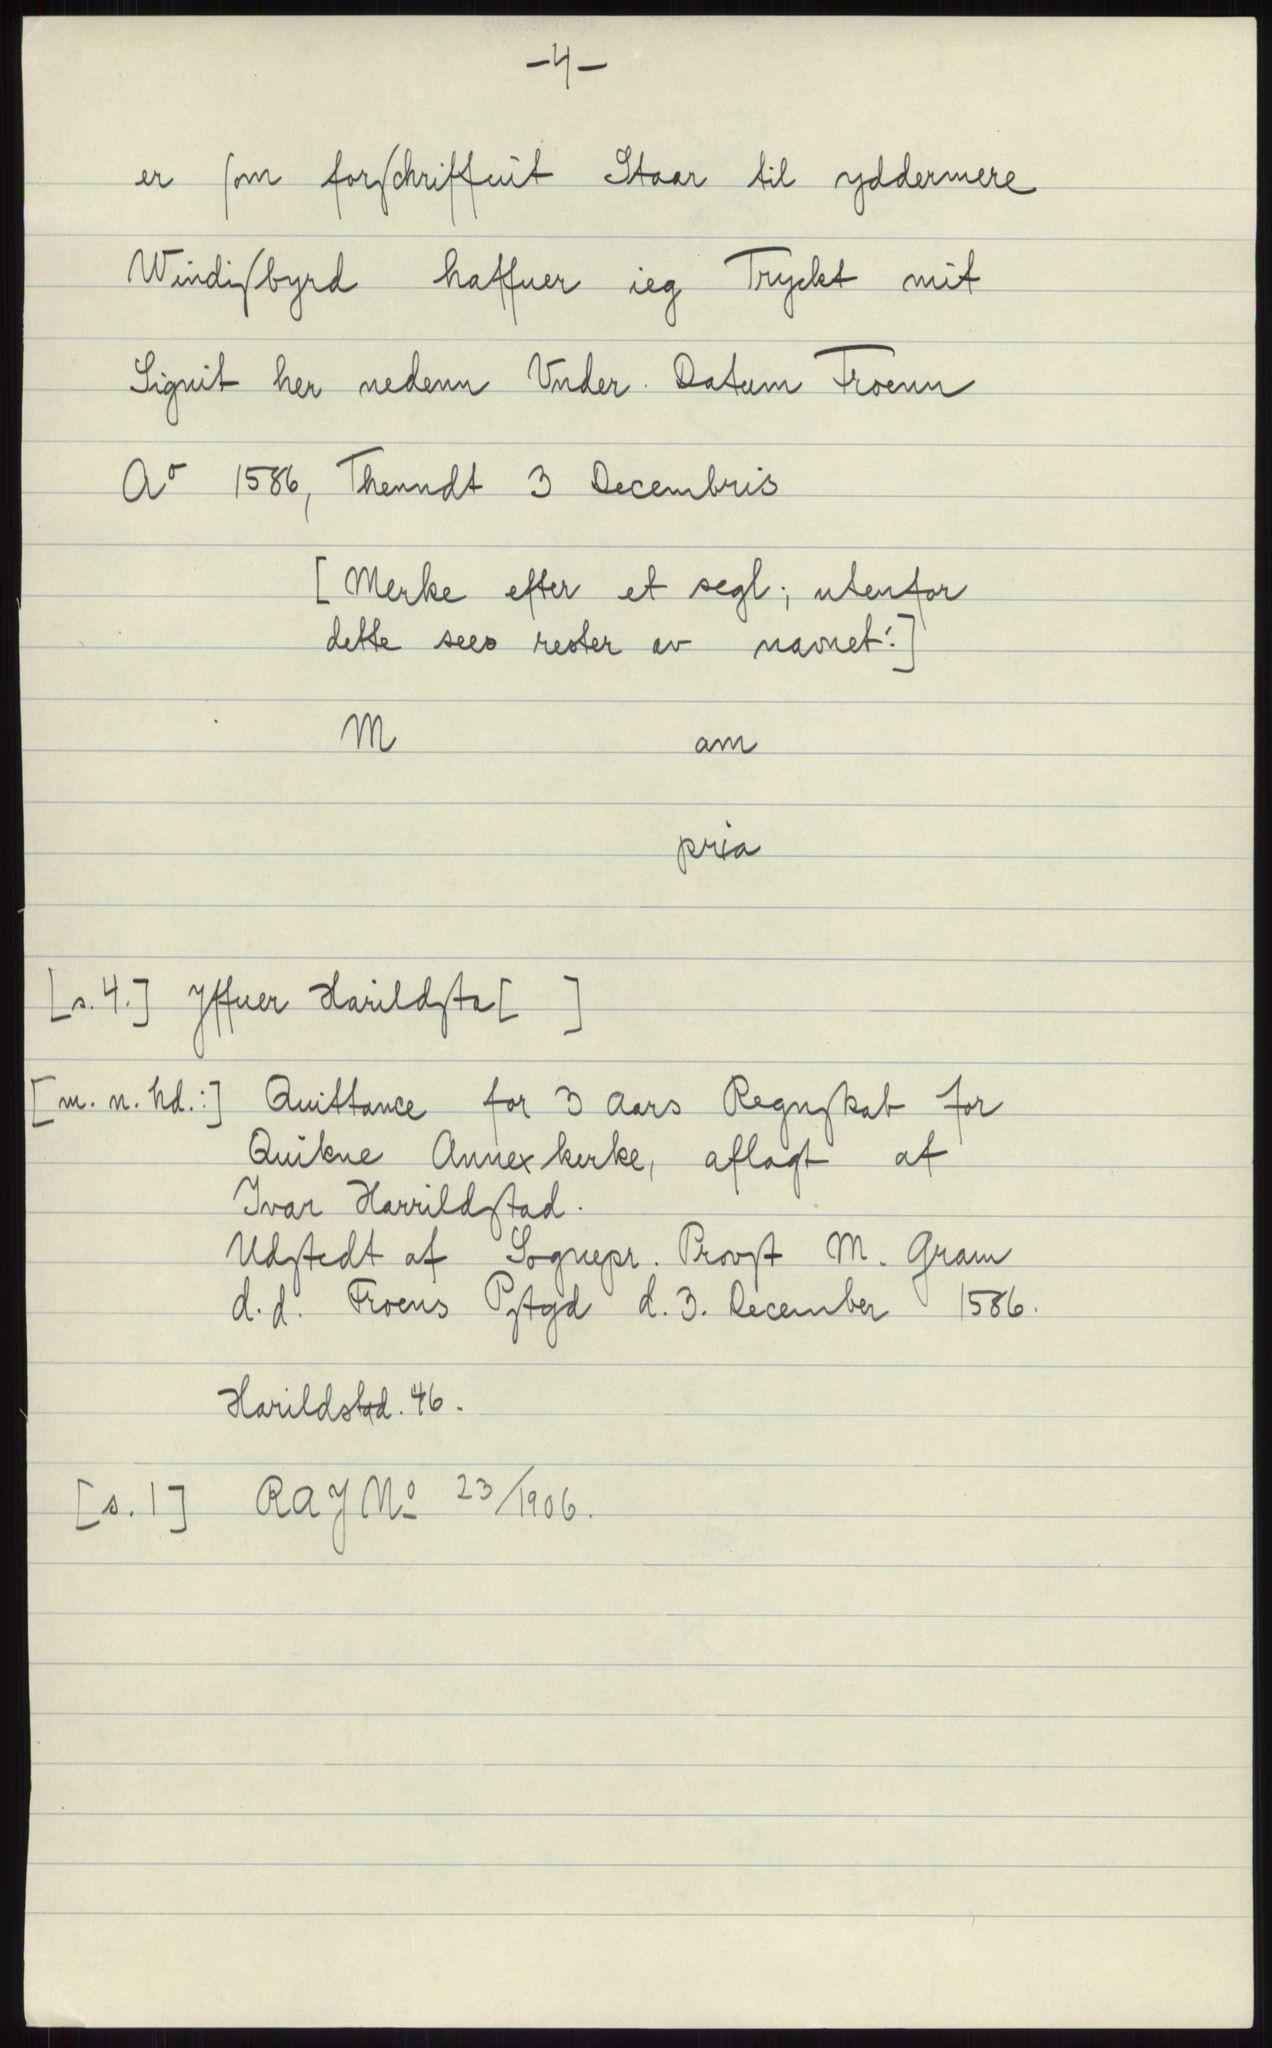 -4-
er som forschriffuit Staar til yddermere
Windisbyrd haffuer ieg Tryckt mit
Signit her nedenn Vnder. Datum Froenn
Aº 1586, Thenndt 3 Decembris
[Merke efter et segl; utenfor
dette sees rester av navnet:]
M am
pria
[s. 4.] Yffuer Harildsta[ ]
[m. n. hd.:] Quittance for 3 Aars Regnskab for
Quikne Annex kerke, aflagt af
Ivar Harrildstad.
Udstedt af Sognepr. Provst M. Gram
d.d. Froens Pstgd d. 3. December 1586.
Harildstad. 46.
[s. 1] RA J Nº 23/1906.